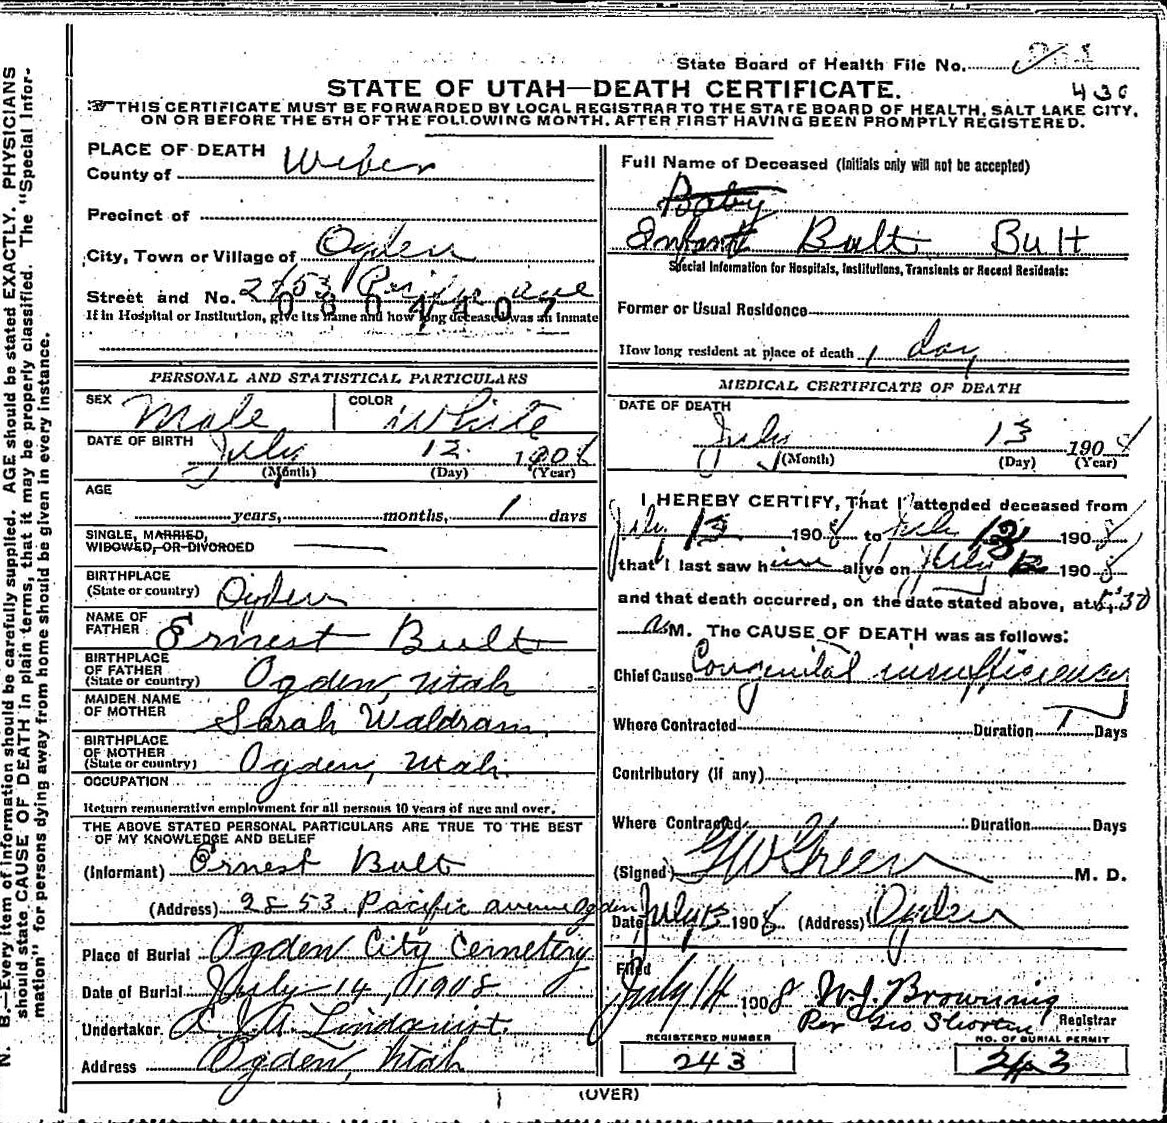 State Board of Health File No.
STATE OF UTAH—DEATH CERTIFICATE.
436
THIS CERTIFICATE MUST BE FORWARDED BY LOCAL REGISTRAR TO THE STATE BOARD OF HEALTH, SALT LAKE CITY,
ON OR BEFORE THE 5TH OF THE FOLLOWING MONTH, AFTER FIRST HAVING BEEN PROMPTLY REGISTERED.
N. B.—Every item of information should be carefully supplied. AGE should be stated EXACTLY. PHYSICIANS
should state CAUSE OF DEATH in plain terms, that it may be properly classified. The "Special Infor-
mation" for persons dying away from home should be given in every instance.
PLACE OF DEATH
County of Weber
Precinct of
City, Town or Village of Ogden
Street and No. 2853 ave
0804407
If in Hospital or Institution, give its name and how long deceased was an Inmate
PERSONAL AND STATISTICAL PARTICULARS
SEX Male COLOR White
DATE OF BIRTH July 12 1908
(Month) (Day) (Year)
AGE
years, months, 1 days
SINGLE, MARRIED,
WIDOWED, OR DIVORCED
BIRTHPLACE
(State or country) Ogden
NAME OF
FATHER Ernest Bult
BIRTHPLACE
OF FATHER
(State or country) Ogden, Utah
MAIDEN NAME
OF MOTHER Sarah Waldram
BIRTHPLACE
OF MOTHER
(State or country) Ogden, Utah.
OCCUPATION
Return remunerative employment for all persons 10 years of age and over.
THE ABOVE STATED PERSONAL PARTICULARS ARE TRUE TO THE BEST
OF MY KNOWLEDGE AND BELIEF
(Informant) Ernest Bult
(Address) 2853 Pacific avenue Ogden
Place of Burial Ogden City Cemetery
Date of Burial July 14, 1908.
Undertaker. Lindquist.
Address Ogden, Utah
Full Name of Deceased (Initials only will not be accepted)
Baby
Infant Bult Bult
Special Information for Hospitals, Institutions, Transients or Recent Residents:
Former or Usual Residence
How long resident at place of death 1 day
MEDICAL CERTIFICATE OF DEATH
DATE OF DEATH
July 13 1908
(Month) (Day) (Year)
I HEREBY CERTIFY, That I attended deceased from
July 13 1908 to July 13 1908
that I last saw him alive on July 1908
and that death occurred, on the date stated above, at 5:30
a M. The CAUSE OF DEATH was as follows:
Chief Cause Congenital insufficiency
Where Contracted Duration 1 Days
Contributory (if any)
Where Contracted Duration Days
(Signed) G W Green M. D.
Date July 13 1908 (Address) Ogden
Filed
July 14 1908 W. J. Browning
Per Geo Shorten Registrar
REGISTERED NUMBER
243
NO. OF BURIAL PERMIT
243
(OVER)